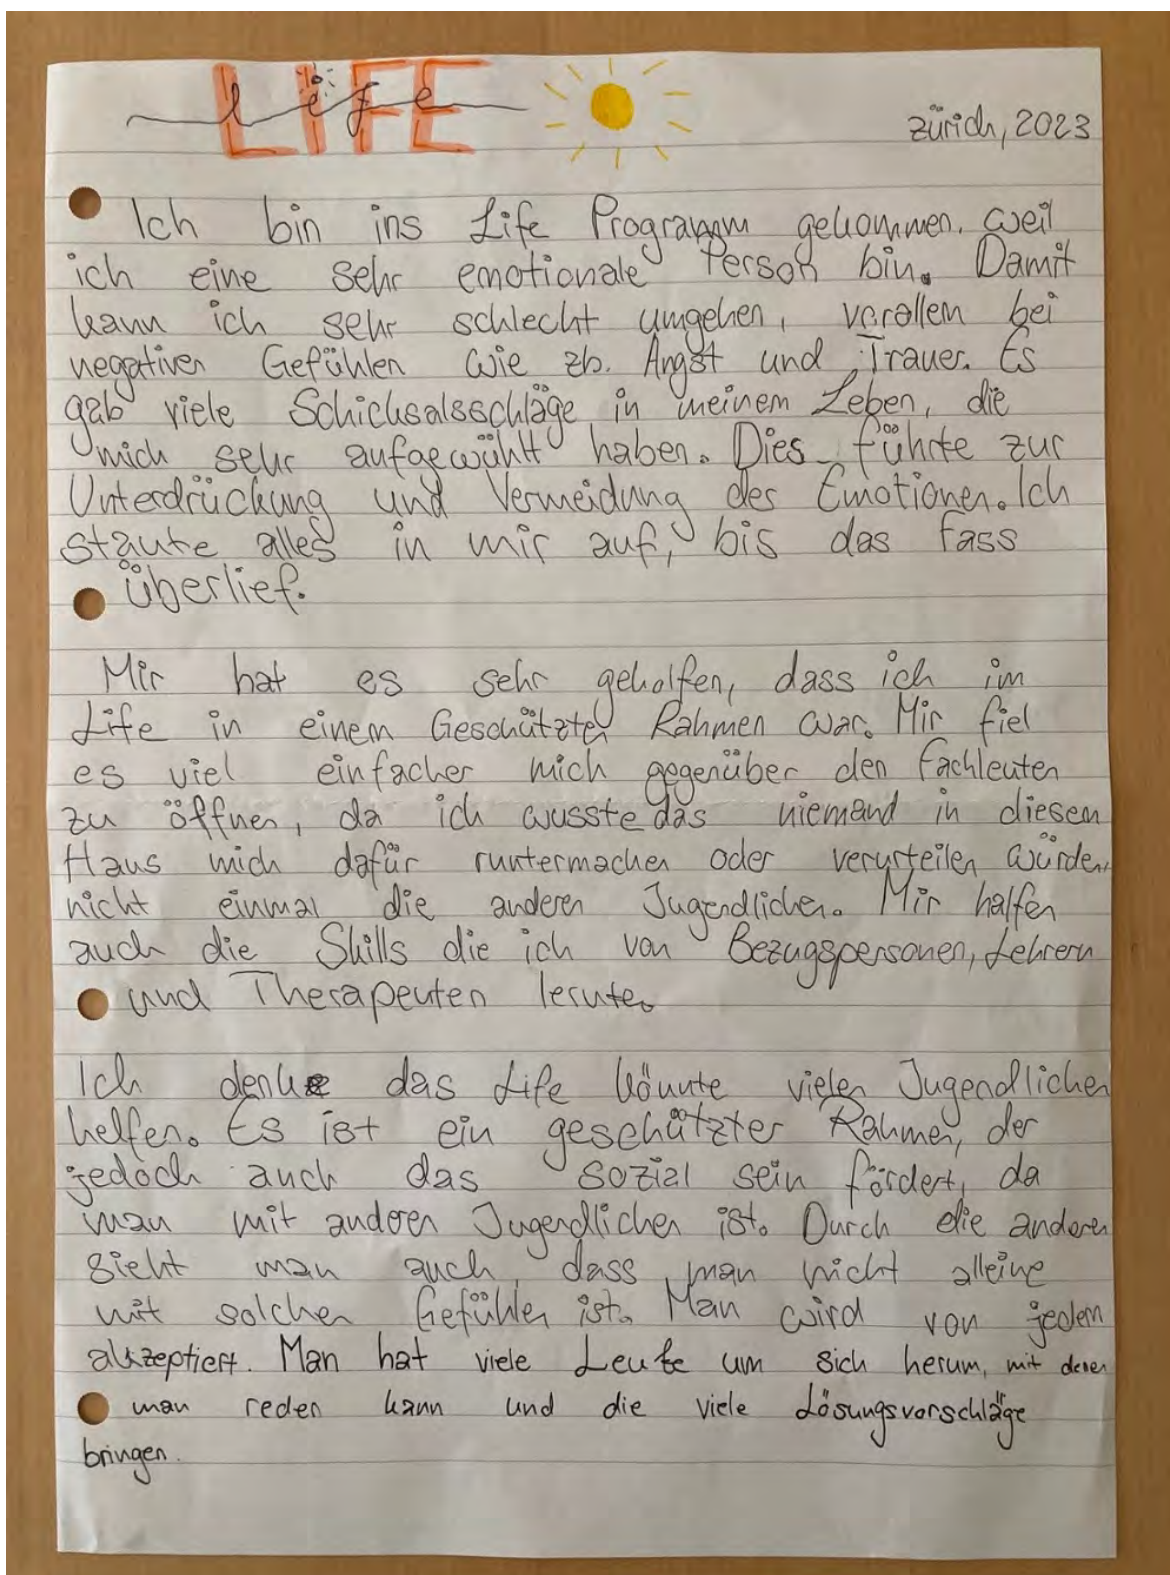 LIFE
life
Zürich, 2023
Ich bin ins Life Programm gekommen, weil
ich eine sehr emotionale Person bin. Damit
kann ich sehr schlecht umgehen, vorallem bei
negativen Gefühlen wie zb. Angst und Trauer. Es
gab viele Schicksalsschläge in meinem Leben, die
mich sehr aufgewühlt haben. Dies führte zur
Unterdrückung und Vermeidung des Emotionen. Ich
staute alles in mir auf, bis das Fass
überlief.
Mir hat es sehr geholfen, dass ich im
Life in einem Geschützten Rahmen war. Mir fiel
es viel einfacher mich gegenüber den Fachleuten
zu öffnen, da ich wusste das niemand in diesem
Haus mich dafür runtermachen oder verurteilen würden,
nicht einmal die anderen Jugendlichen. Mir halfen
auch die Skills die ich von Bezugspersonen, Lehrern
und Therapeuten lernte.
Ich denke das Life könnte vielen Jugendlichen
helfen. Es ist ein geschützter Rahmen, der
jedoch auch das sozial sein fördert, da
man mit anderen Jugendlichen ist. Durch die anderen
sieht man auch, dass man nicht alleine
mit solchen Gefühlen ist. Man wird von jedem
akzeptiert. Man hat viele Leute um sich herum, mit denen
man reden kann und die viele Lösungsvorschläge
bringen.